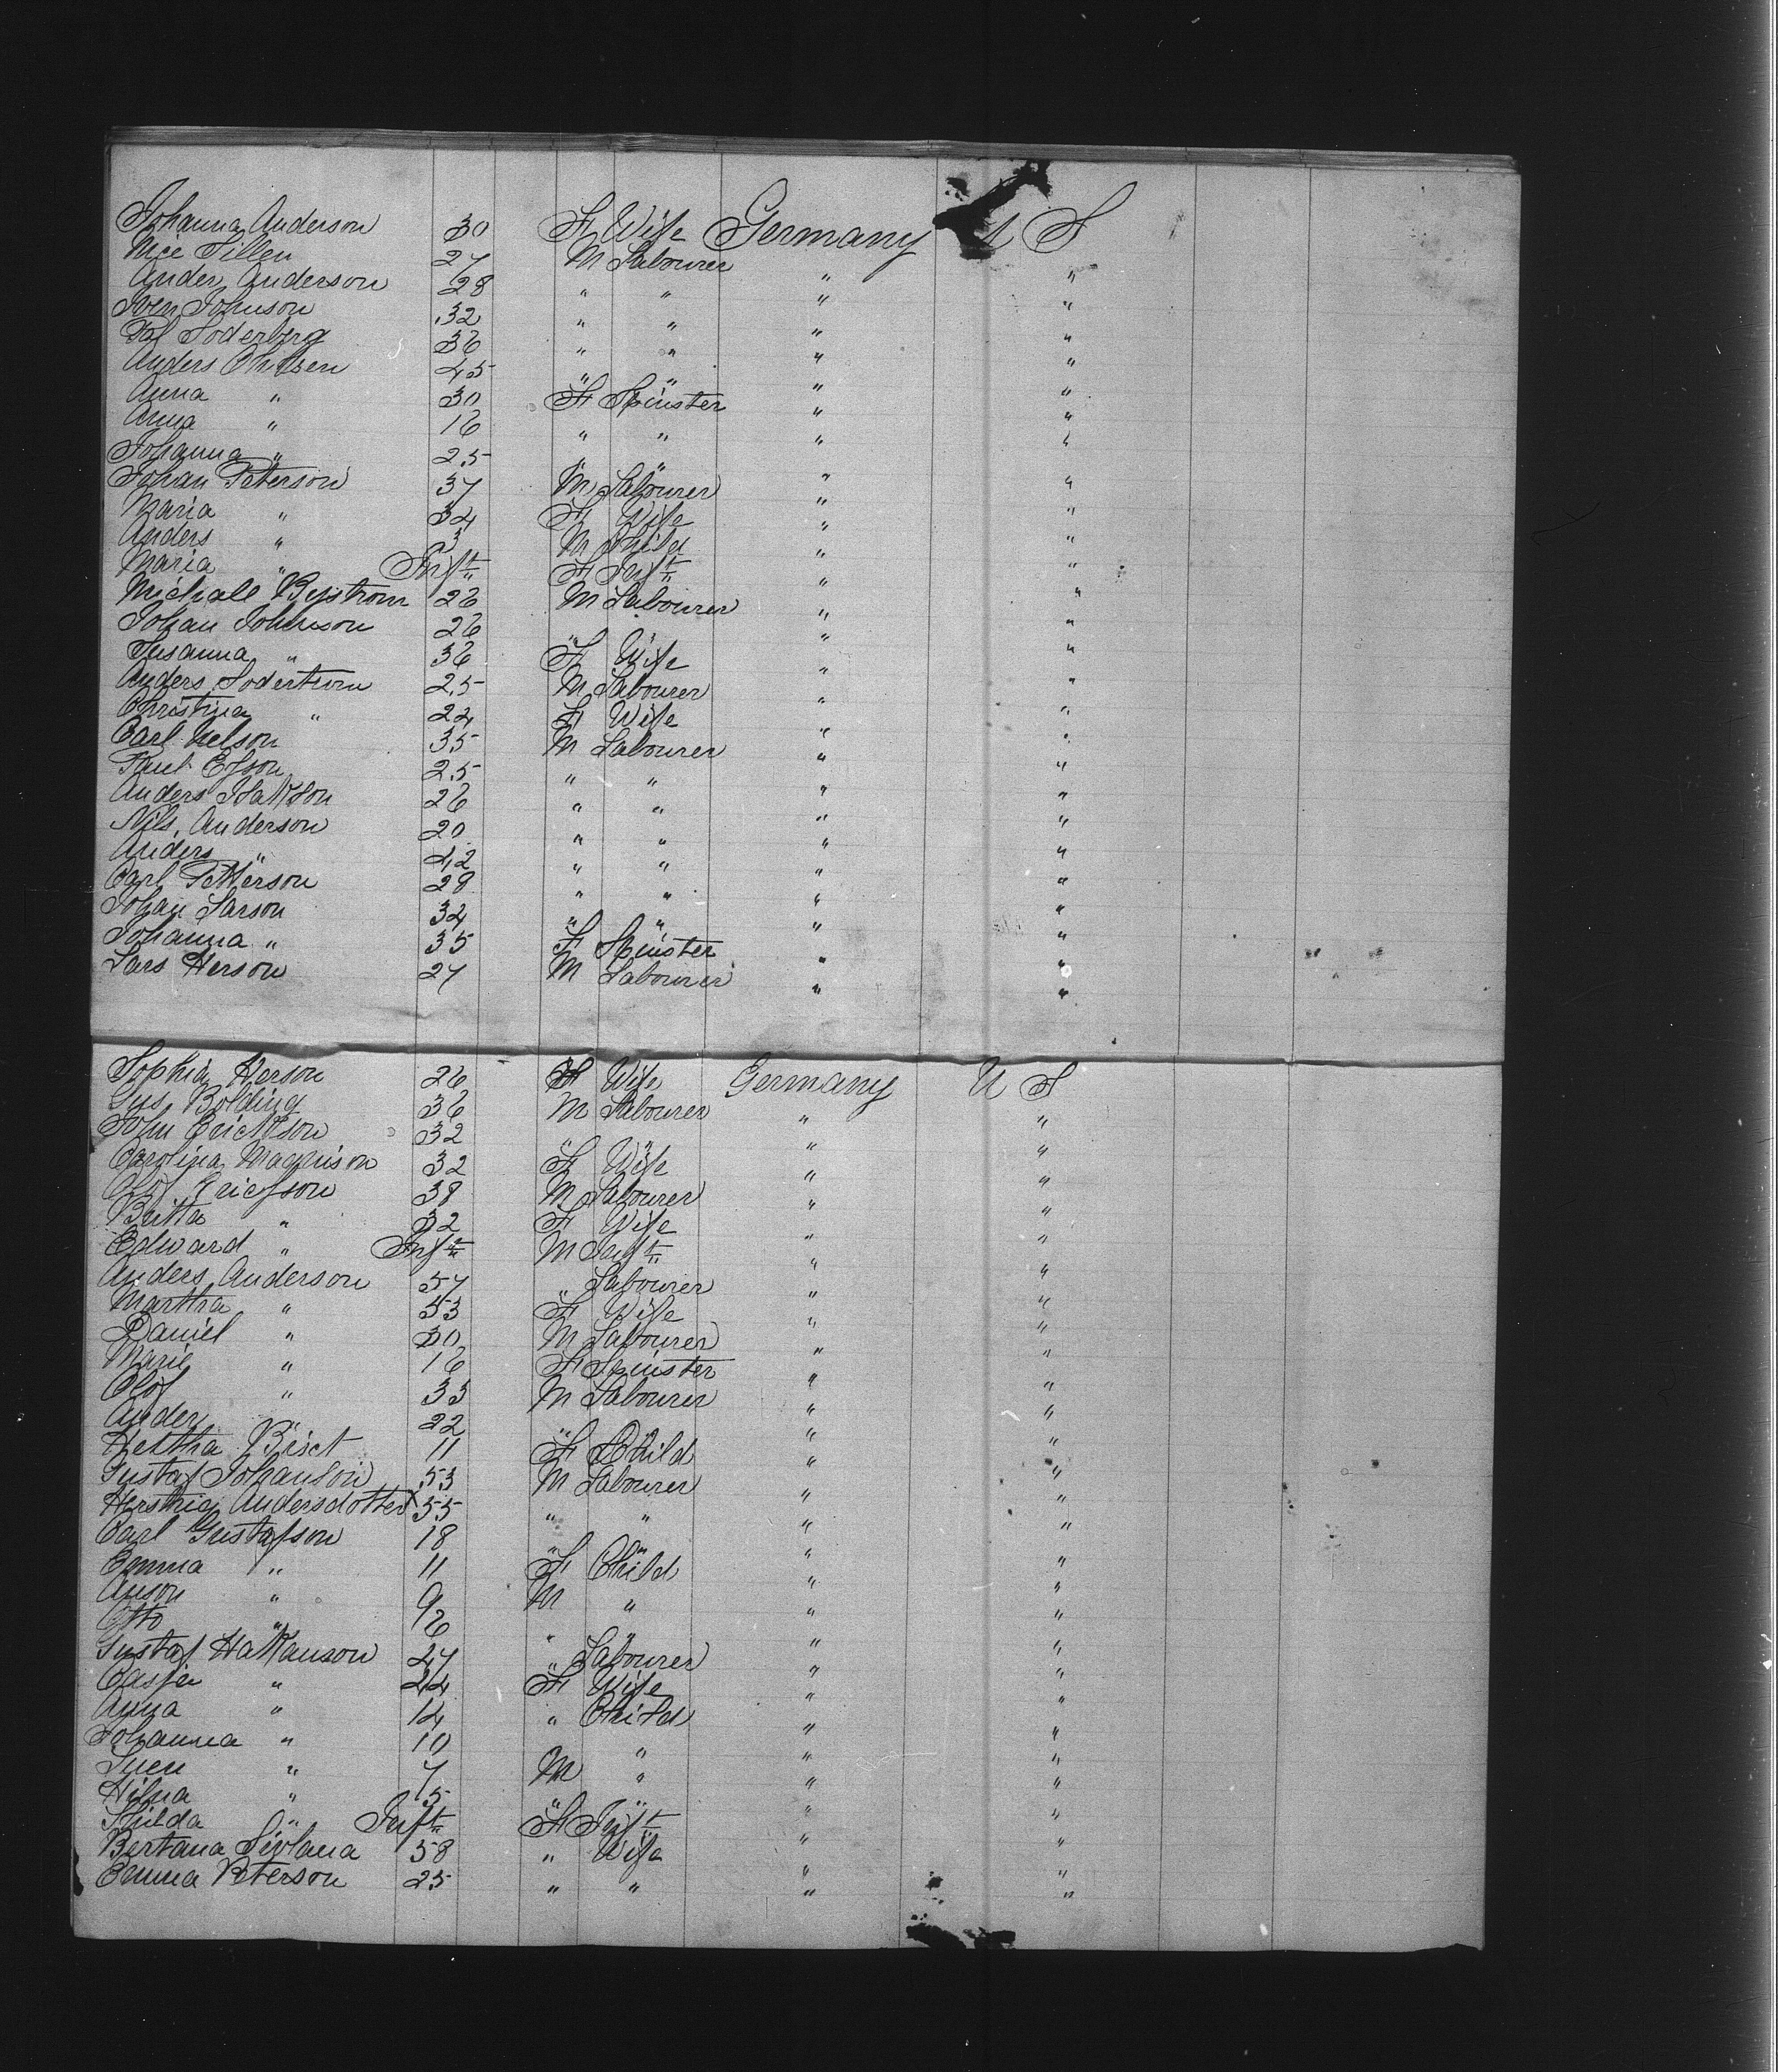 Johanna Anderson 30 F Wife Germany U S
Nice Tillen 27 M Labourer " "
Ander Anderson 28 " " " "
Sven Johnson 32 " " " "
Pal Soderberg 36 " " " "
Anders Ohlsen 45 " " " "
Anna " 30 F Spinster " "
Anna " 16 " " " "
Johanna " 25 " " " "
Johan Peterson 37 M Labourer " "
Maria " 34 F Wife " "
Anders " 3 M Child " "
Maria " Inft F Inft " "
Michall Bystrom 26 M Labourer " "
Johan Johnson 26 " " " "
Susanna " 36 F Wife " "
Anders Soderstrom 25 M Labourer " "
Christina " 24 F Wife " "
Carl Nelson 35 M Labourer " "
Knut 25 " " " "
Anders Isakson 26 " " " "
Nils Anderson 20 " " " "
Anders " 42 " " " "
Carl Petterson 28 " " " "
Johan Larson 34 " " " "
Johanna " 35 F Spinster " "
Lars Herson 27 M Labourer " "
Sophia Herson 26 F Wife Germany U S
Gus Bolding 36 M Labourer " "
John Erickson 32 " " " "
Carolina Magnuson 32 F Wife " "
Olof Ericsson 38 M Labourer " "
Britta " 32 F Wife " "
Edward " Inft M Inft " "
Anders Anderson 57 " Labourer " "
Martha " 53 F Wife " "
Daniel " 30 M Labourer " "
Marie " 16 F Spinster " "
Olof " 33 M Labourer " "
Ander " 22 " " " "
11 F Child " "
Gustaf Johanson 53 M Labourer " "
Andersdotter 55 " " " "
Carl Gustafson 18 " " " "
Emma " 11 F Child " "
Anson " 9 M " " "
Otto " 6 " " " "
Gustaf Hakanson 47 " Labourer " "
Casja " 44 F Wife " "
Anna " 14 " Child " "
Johanna " 10 " " " "
Sven " 7 M " " "
Hilma " 5 " " " "
" Inft F Inft " "
Bertana 58 " Wife " "
Emma Peterson 25 " " " "